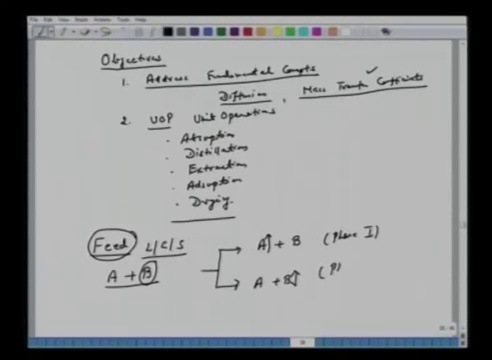 Objectives
1. Address Fundamental Concepts
Diffusion, Mass Transfer Coefficients
2. UOP Unit Operations
. Absorption
. Distillation
. Extraction
. Adsorption
. Drying
Feed L/G/S
A + B
A↑ + B (Phase I)
A + B↑ (P